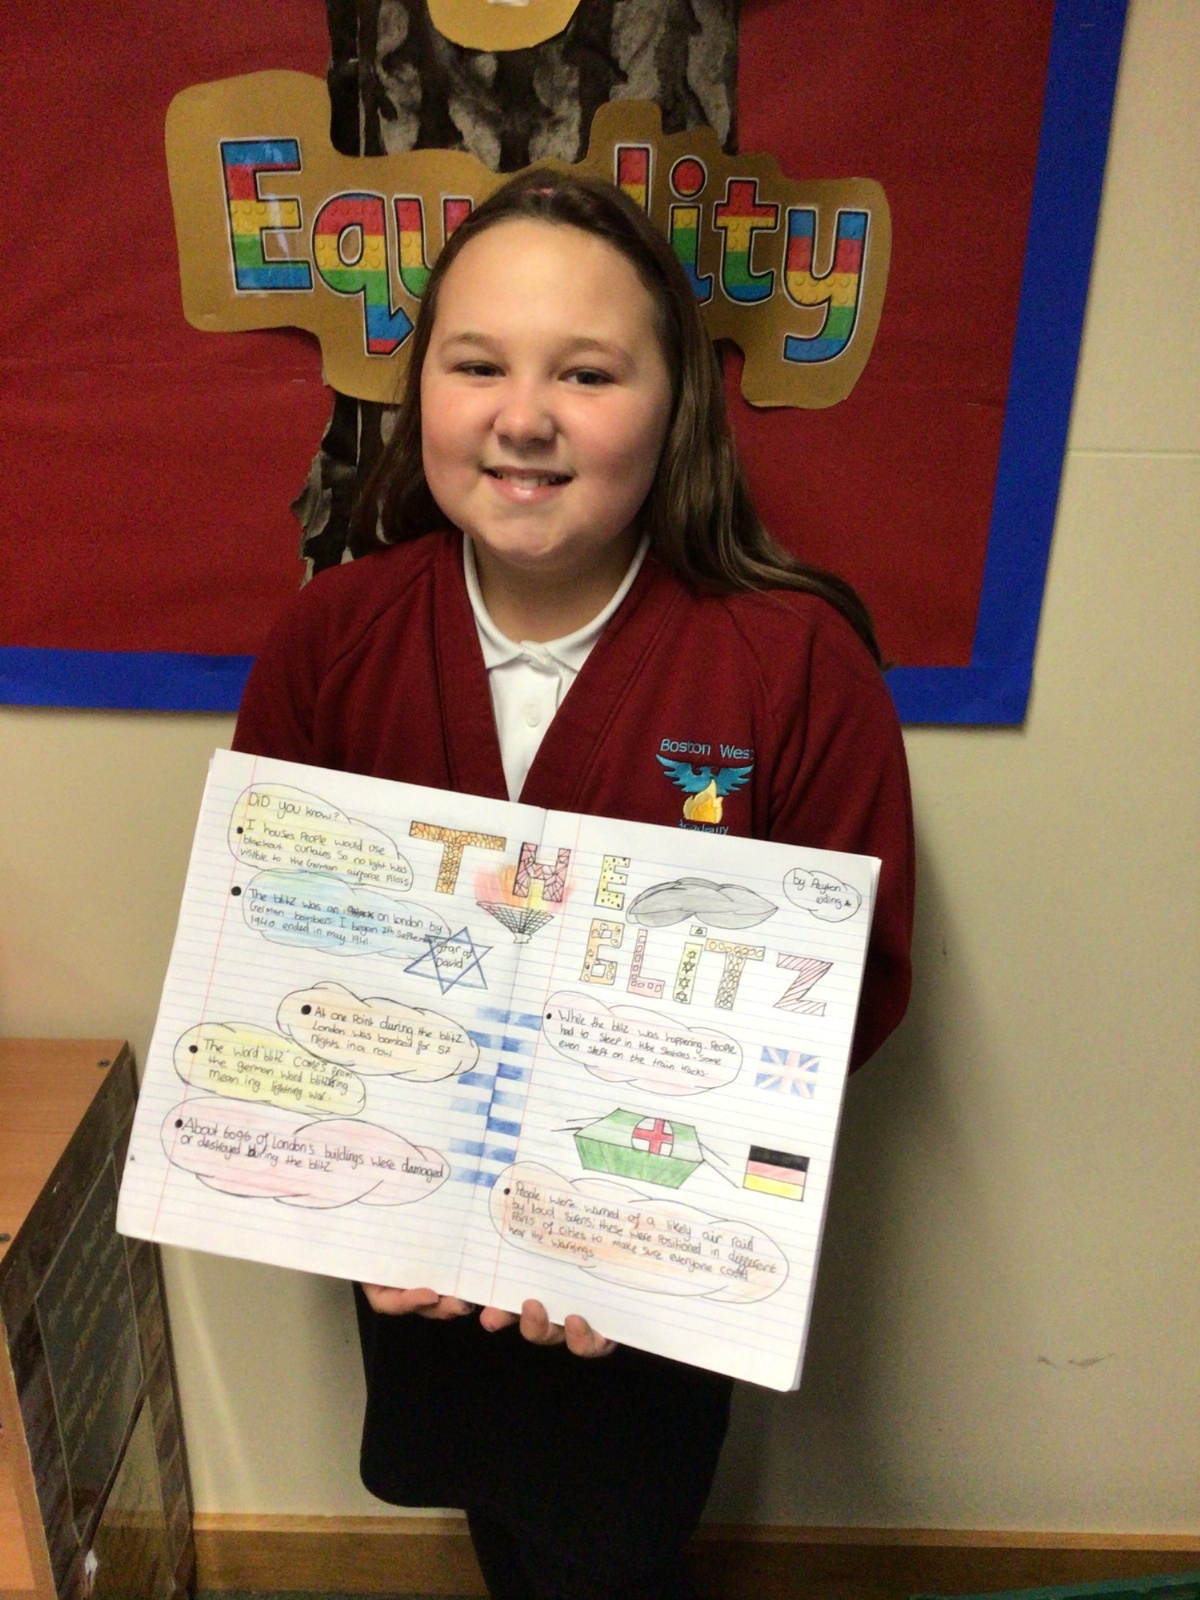 Equality
Boston West
Academy
DiD you know?
I houses People would use
blackout curtains so no light was
visible to the German airforce Pilots
THE
by Peyton
BLITZ
The blitz was an on london by
German bombers. I began
1940 ended in may 1941.
Star of
David
At one Point during the blitz
London was bombed for 57
nights in a row
The word "blitz" comes from
the german word
mean ing lightning war.
About 60% of London's buildings were damaged
or destroyed during the blitz.
While the blitz was happening. People
had to sleep in tube stations. Some
even slept on the train tracks.
People were warned of a likely air raid
by loud sirens; these were Positioned in different
Parts of cities to make sure everyone could
hear the warnings